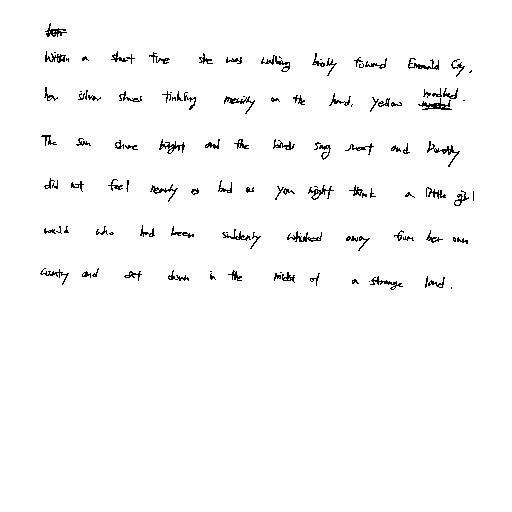 Within a short time she was walking briskly toward Emerald City,
her silver shoes tinkling merrily on the hard, yellow roadbed.
The sun shone bright and the birds sang sweet and Dorothy
did not feel nearly as bad as you might think a little girl
would who had been suddenly whisked away from her own
country and set down in the midst of a strange land.